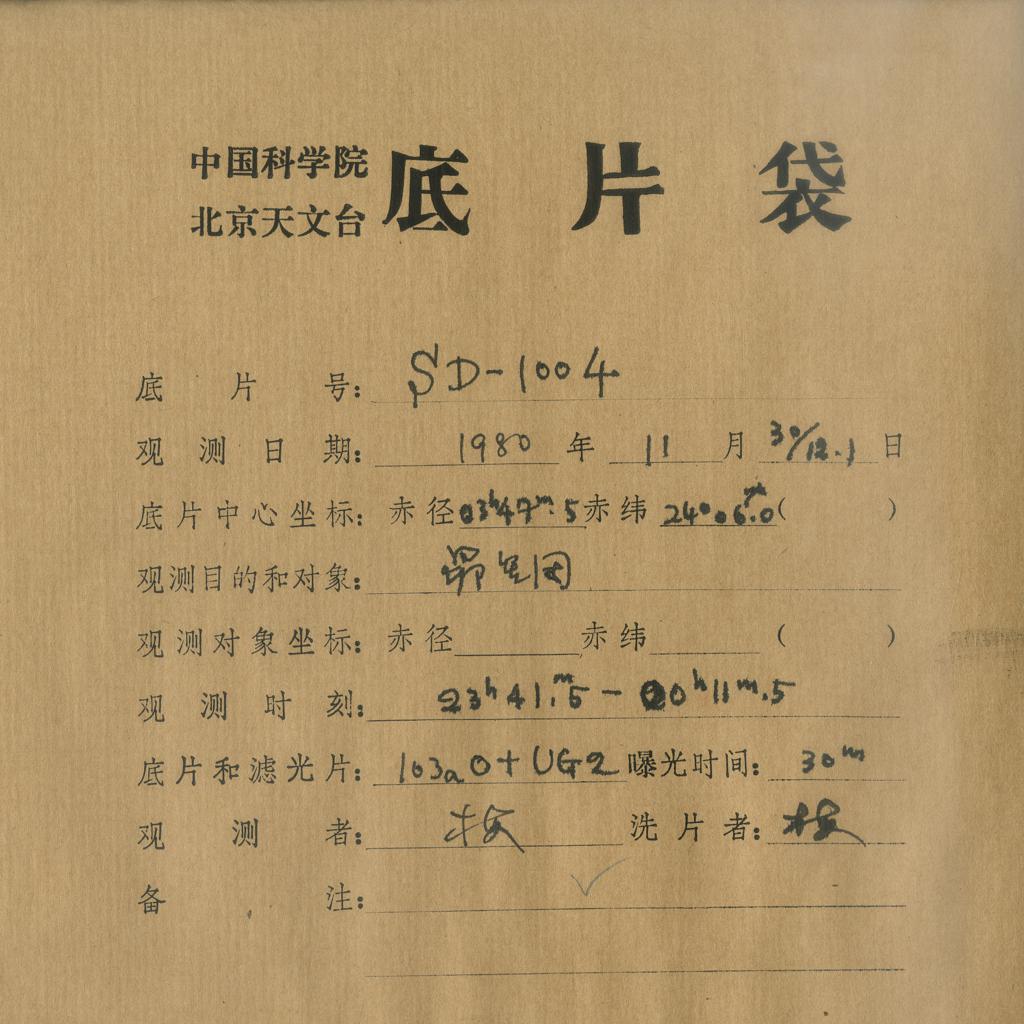 中国科学院
北京天文台
底片袋
底片号: SD-1004
观测日期: 1980年 11月 30/12.1日
底片中心坐标: 赤径 03h47m.5 赤纬 24°06.0 ( )
观测目的和对象: 昴星团
观测对象坐标: 赤径 赤纬 ( )
观测时刻: 23h41m.5 - 00h11m.5
底片和滤光片: 103aO+UG2 曝光时间: 30m
观测者: 洗片者:
备注: